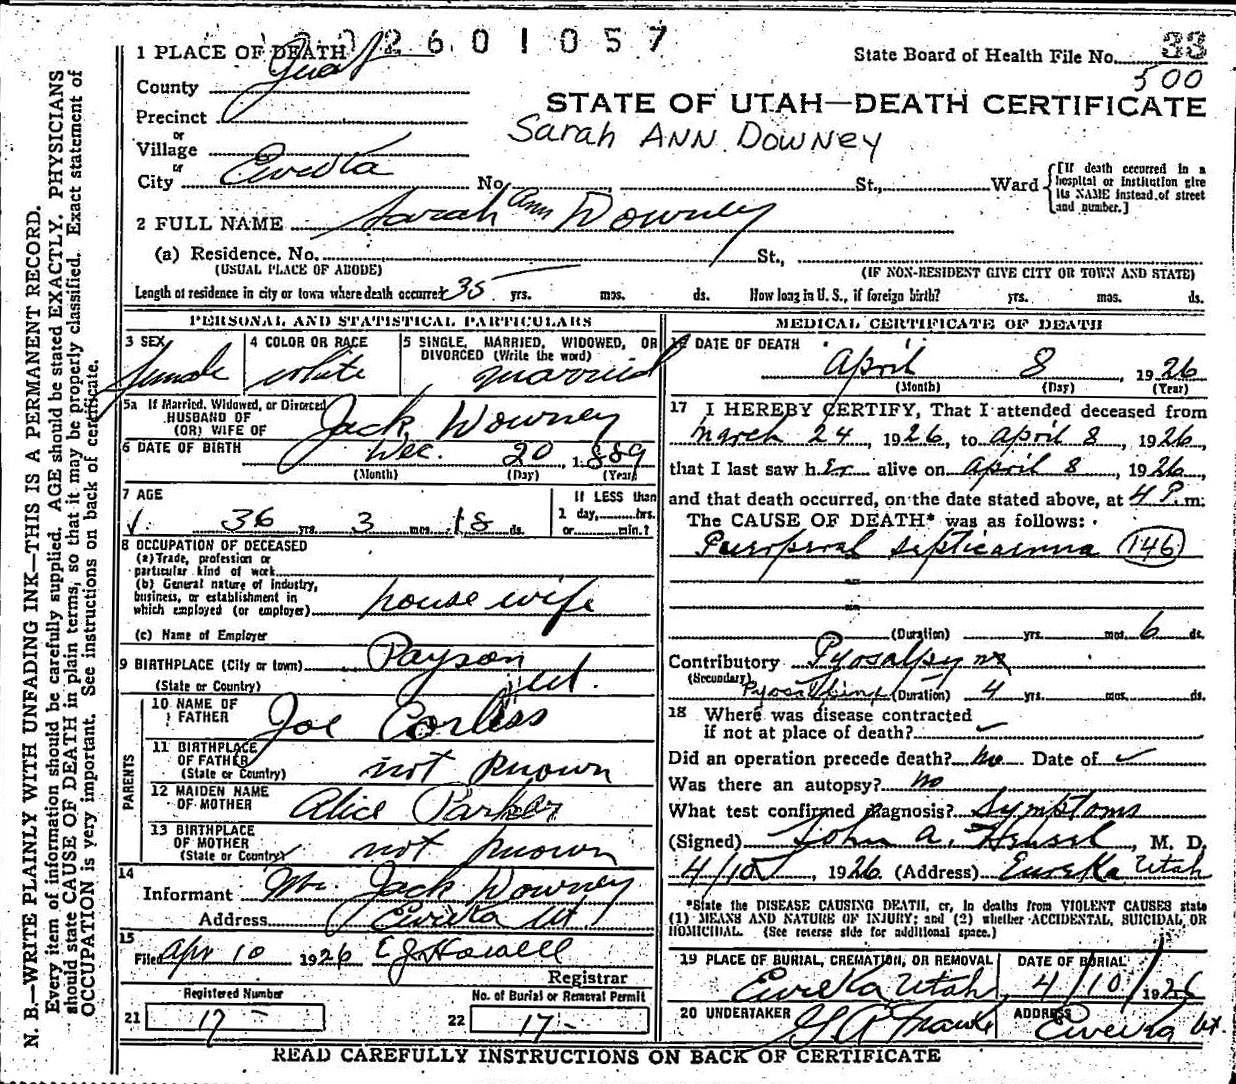 2601057
1 PLACE OF DEATH
State Board of Health File No. 33
500
County Juab
STATE OF UTAH—DEATH CERTIFICATE
Precinct
Sarah ANN DOWNEY
or
Village
or
City Eureka No. St., Ward
[If death occurred in a
hospital or institution give
its NAME instead of street
and number.]
2 FULL NAME Sarah Ann Downey
(a) Residence. No. St.,
(USUAL PLACE OF ABODE) (IF NON-RESIDENT GIVE CITY OR TOWN AND STATE)
Length of residence in city or town where death occurred 35 yrs. mos. ds. How long in U. S., if foreign birth? yrs. mos. ds.
PERSONAL AND STATISTICAL PARTICULARS
3 SEX 4 COLOR OR RACE 5 SINGLE, MARRIED, WIDOWED, OR
DIVORCED (Write the word)
female white married
5a If Married, Widowed, or Divorced
HUSBAND OF
(OR) WIFE OF Jack Downey
6 DATE OF BIRTH Dec. 20, 1889
(Month) (Day) (Year)
7 AGE If LESS than
1 day, hrs.
36 yrs. 3 mos. 18 ds. or min.?
8 OCCUPATION OF DECEASED
(a) Trade, profession or
particular kind of work
(b) General nature of industry,
business, or establishment in
which employed (or employer) house wife
(c) Name of Employer
9 BIRTHPLACE (City or town) Payson
(State or Country) Ut.
PARENTS
10 NAME OF
FATHER Joe Corless
11 BIRTHPLACE
OF FATHER
(State or Country) not known
12 MAIDEN NAME
OF MOTHER Alice Parker
13 BIRTHPLACE
OF MOTHER
(State or Country) not known
14
Informant Mr. Jack Downey
Address Eureka Ut
15
Filed Apr 10 1926 E J Howell
Registrar
Registered Number No. of Burial or Removal Permit
21 17 22 17
MEDICAL CERTIFICATE OF DEATH
16 DATE OF DEATH
April 8, 1926
(Month) (Day) (Year)
17 I HEREBY CERTIFY, That I attended deceased from
March 24, 1926, to April 8, 1926,
that I last saw her alive on April 8, 1926
and that death occurred, on the date stated above, at 4 P. m.
The CAUSE OF DEATH* was as follows:
Puerperal septicaemia (146)
(Duration) yrs. mos. 6 ds.
Contributory Pyosalpynx
(Secondary) (Duration) 4 yrs. mos. ds.
18 Where was disease contracted
if not at place of death?
Did an operation precede death? No Date of
Was there an autopsy? No
What test confirmed diagnosis? Symptoms
(Signed) John A. Hensel, M. D.
4/10, 1926 (Address) Eureka Utah
*State the DISEASE CAUSING DEATH, or, in deaths from VIOLENT CAUSES state
(1) MEANS AND NATURE OF INJURY; and (2) whether ACCIDENTAL, SUICIDAL OR
HOMICIDAL. (See reverse side for additional space.)
19 PLACE OF BURIAL, CREMATION, OR REMOVAL DATE OF BURIAL
Eureka Utah, 4/10/1926
20 UNDERTAKER ADDRESS
Eureka Ut.
READ CAREFULLY INSTRUCTIONS ON BACK OF CERTIFICATE
N. B.—WRITE PLAINLY WITH UNFADING INK—THIS IS A PERMANENT RECORD.
Every item of information should be carefully supplied. AGE should be stated EXACTLY. PHYSICIANS
should state CAUSE OF DEATH in plain terms, so that it may be properly classified. Exact statement of
OCCUPATION is very important. See instructions on back of certificate.